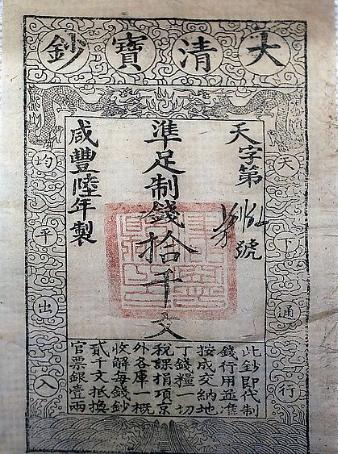 大清寶鈔
天下通行
天字第
號
準足制錢拾千文
咸豐陸年製
均平出入
此鈔即代制
錢行用並准
按成交納地
丁錢糧一切
稅課捐項京
外各庫一概
收解每錢鈔
貳千文抵換
官票銀壹兩